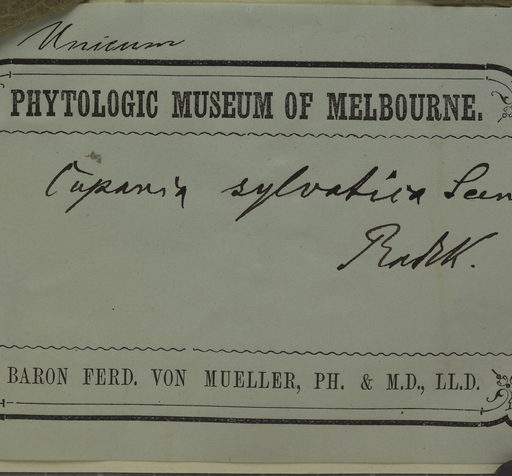 Unicum
PHYTOLOGIC MUSEUM OF MELBOURNE.
Cupania sylvatica Seem
Radlk.
BARON FERD. VON MUELLER, PH. & M.D., LL.D.